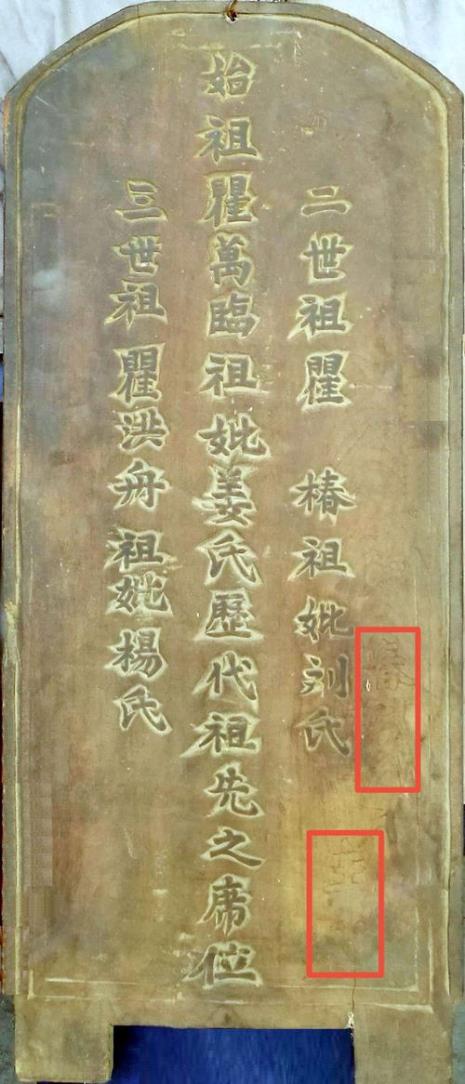 二世祖瞿 椿祖妣刘氏
始祖瞿萬臨祖妣姜氏歷代祖先之席位
三世祖瞿洪舟祖妣楊氏